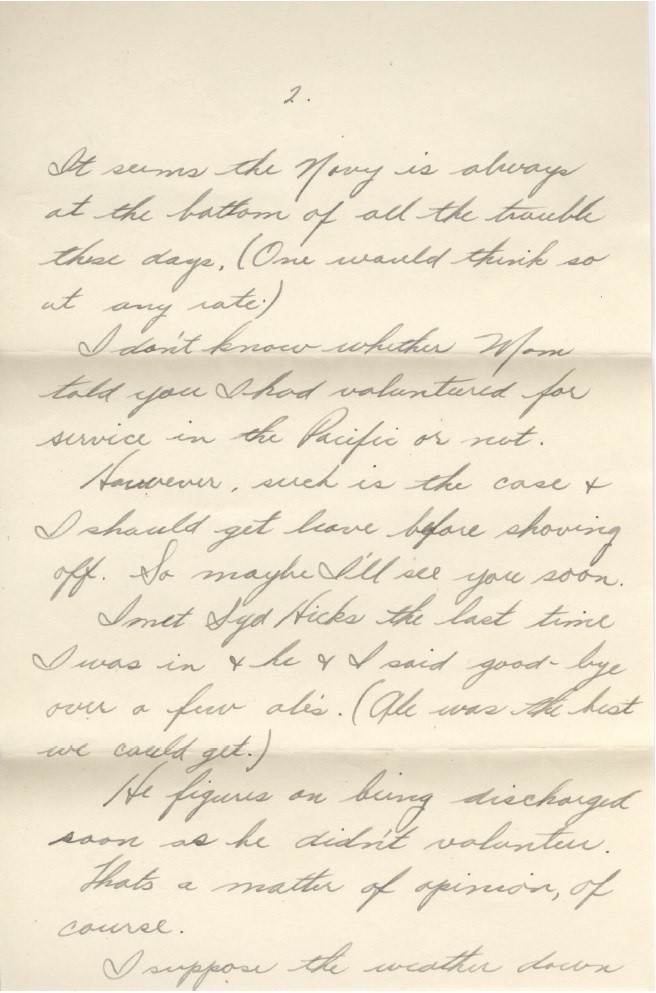 2.
It seems the Navy is always
at the bottom of all the trouble
these days. (One would think so
at any rate.)
I don't know whether Mom
told you I had voluntured for
service in the Pacific or not.
However, such is the case &
I should get leave before shoving
off. So maybe I'll see you soon.
I met Syd Hicks the last time
I was in & he & I said good-bye
over a few ales. (Ale was the best
we could get.)
He figures on being discharged
soon as he didn't volunteer.
Thats a matter of opinion, of
course.
I suppose the weather down